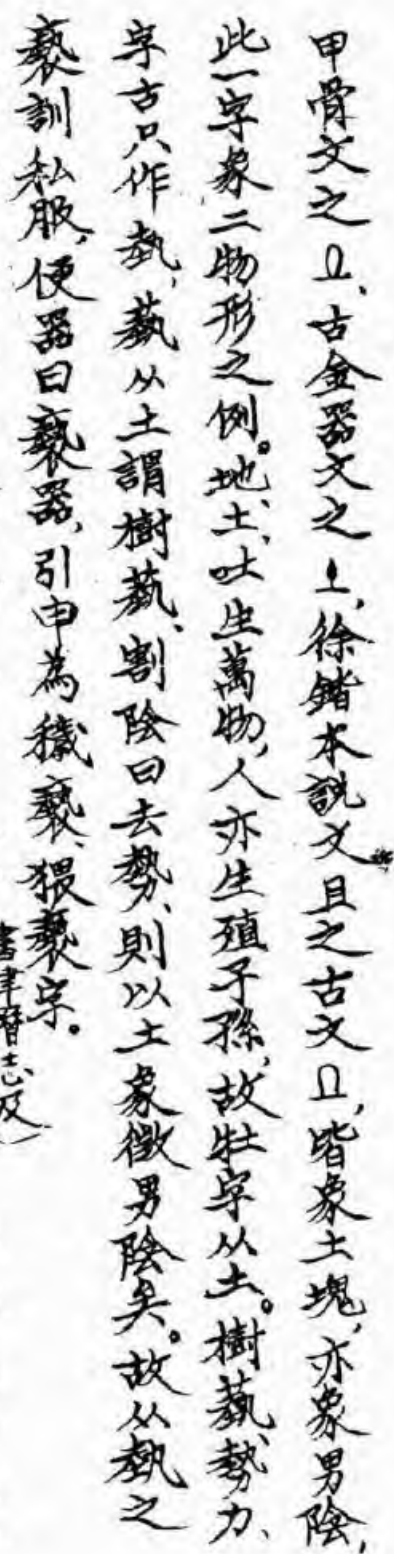 甲骨文之Ω、古金器文之⊥,徐鍇本説文且之古文Ω,皆象土塊,亦象男陰,
此一字象二物形之例。地、土、吐生萬物,人亦生殖子孫,故牡字从土。樹蓺、勢力、
字古只作埶,蓺从土謂樹蓺、割陰曰去勢、則以土象徵男陰矣。故从埶之
褻訓私服,便器曰褻器,引申為穢褻、猥褻字。